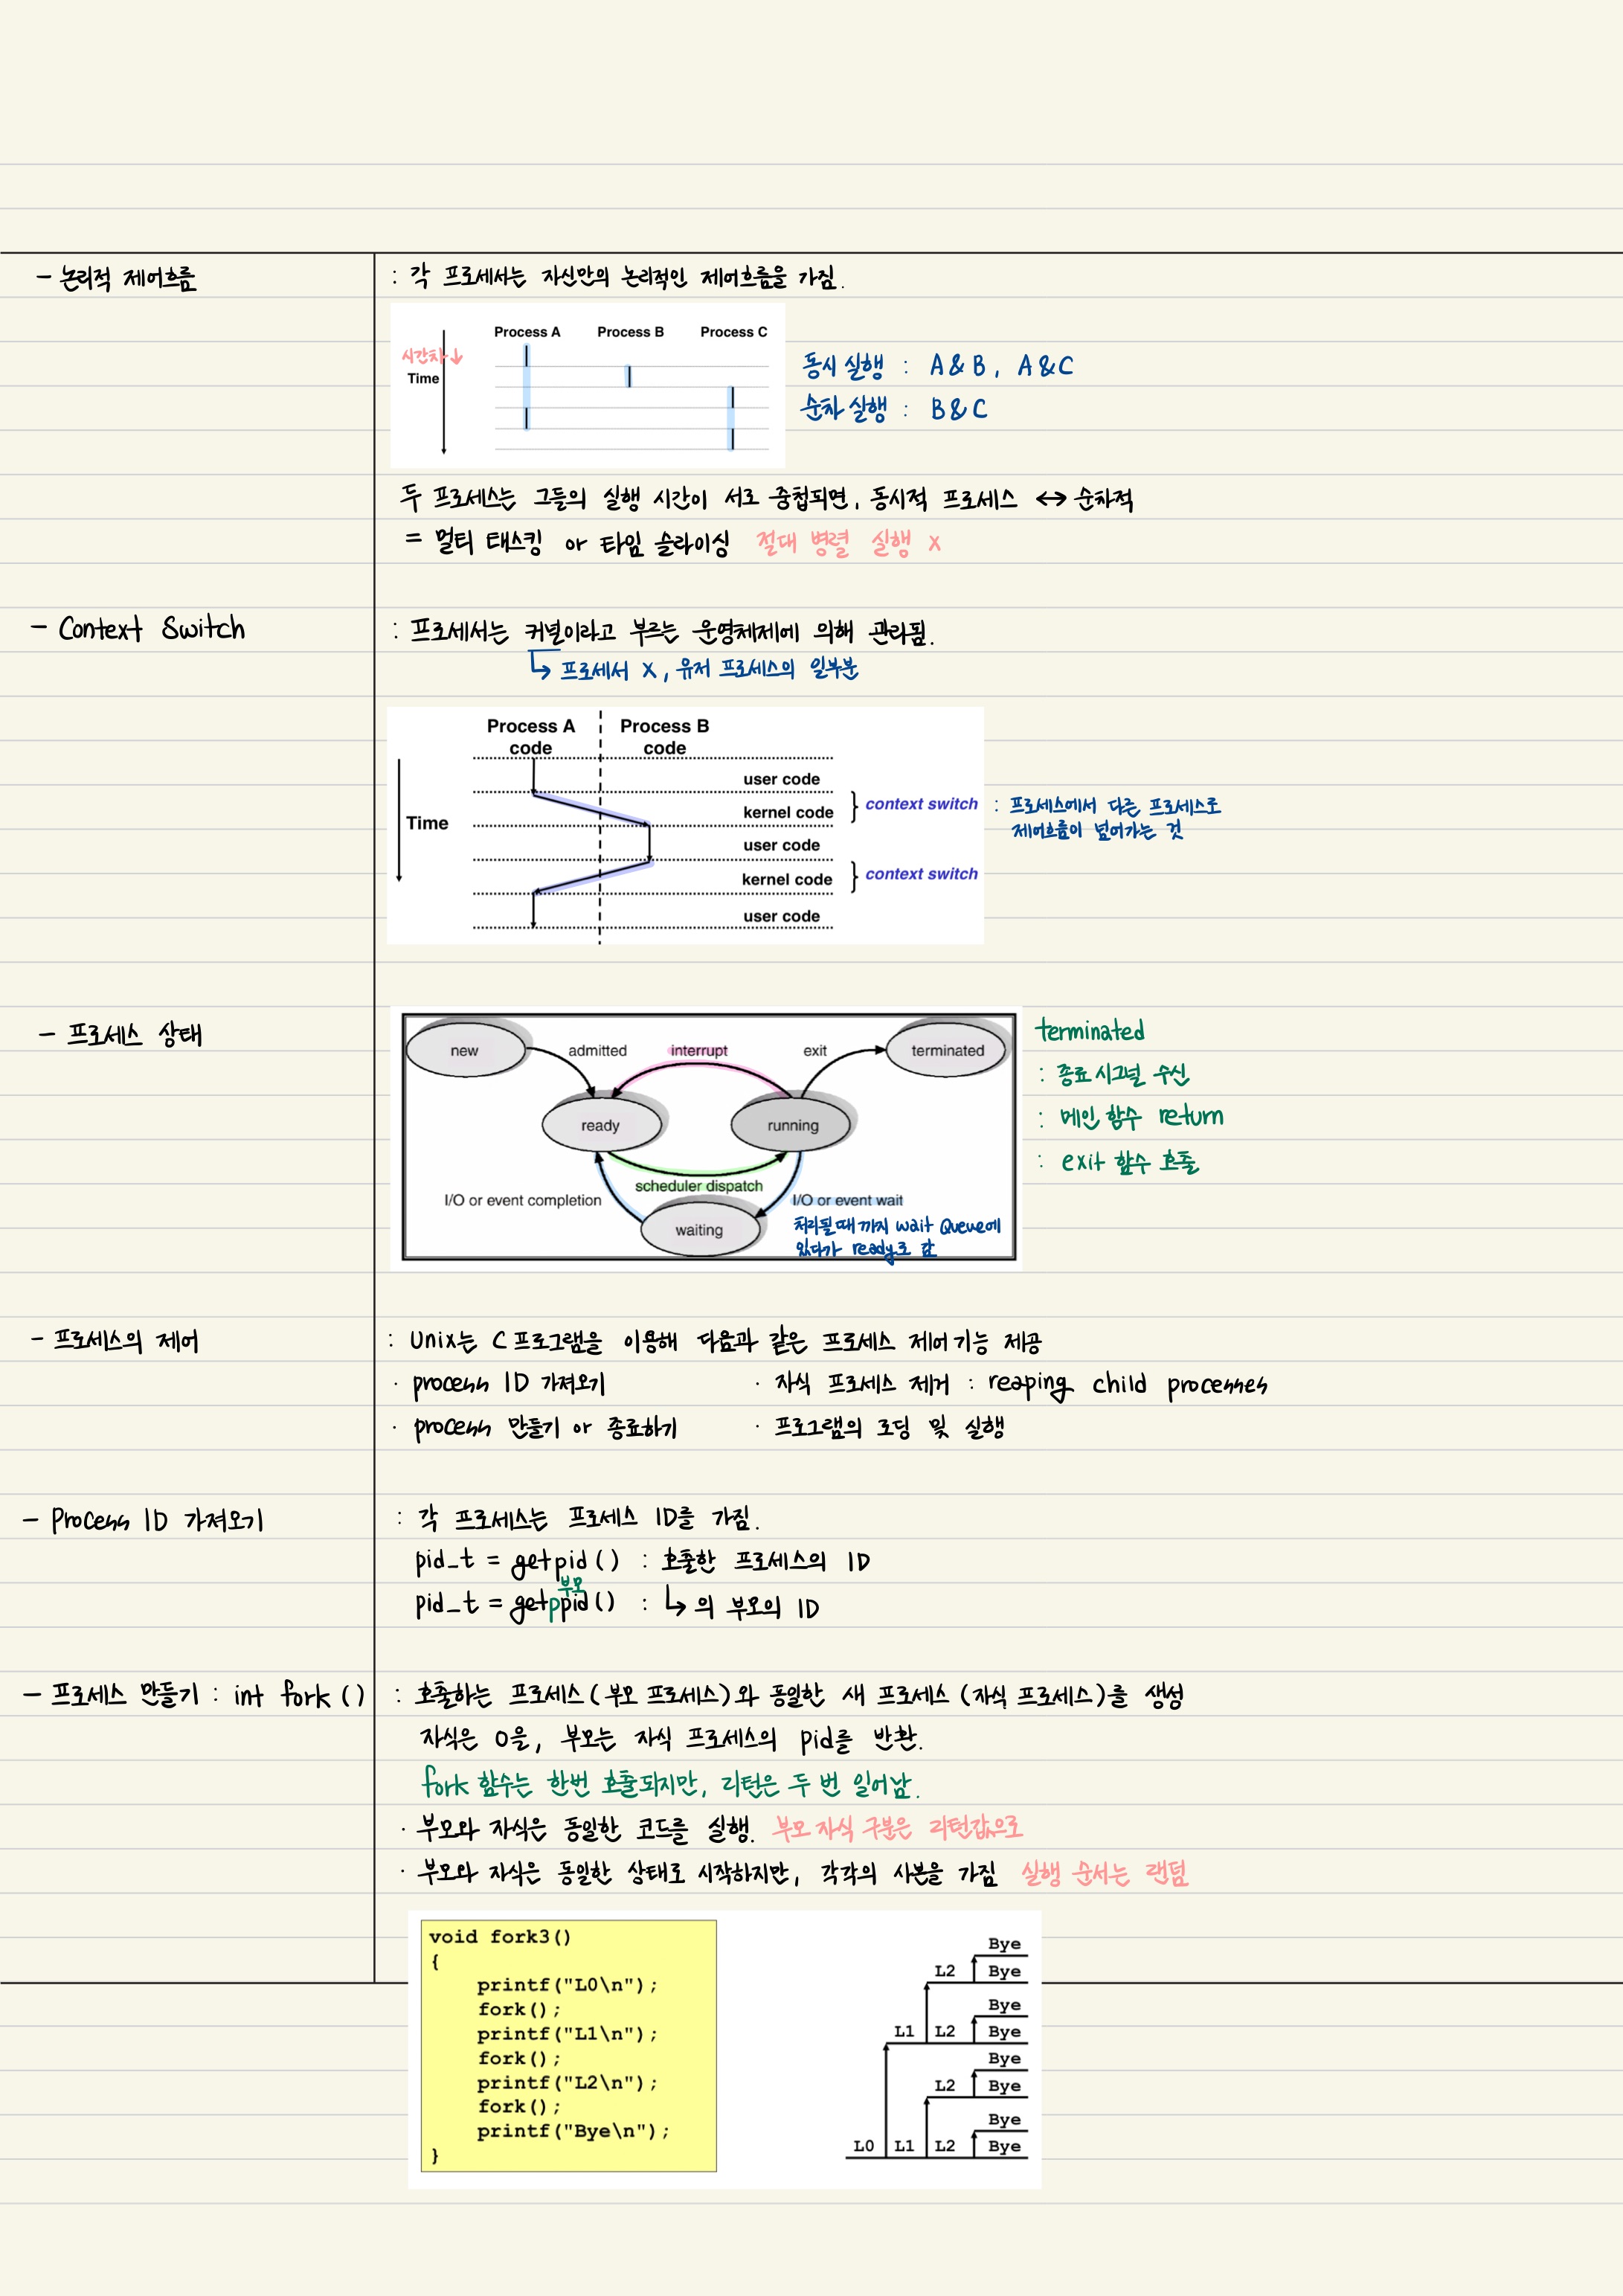 - 논리적 제어흐름
: 각 프로세서는 자신만의 논리적인 제어흐름을 가짐.
Process A Process B Process C
시간차↓
Time
동시 실행 : A&B, A&C
순차 실행 : B&C
두 프로세스는 그들의 실행 시간이 서로 중첩되면, 동시적 프로세스 ↔ 순차적
= 멀티 태스킹 or 타임 슬라이싱 절대 병렬 실행 X
- Context Switch
: 프로세서는 커널이라고 부르는 운영체제에 의해 관리됨.
↳ 프로세서 X, 유저 프로세스의 일부분
Process A code
Process B code
Time
user code
kernel code } context switch
: 프로세스에서 다른 프로세스로
제어흐름이 넘어가는 것
user code
kernel code } context switch
user code
- 프로세스 상태
new admitted interrupt exit terminated
ready running
scheduler dispatch
I/O or event completion I/O or event wait
waiting
처리될 때 까지 wait Queue에
있다가 ready로 감
terminated
: 종료 시그널 수신
: 메인 함수 return
: exit 함수 호출
- 프로세스의 제어
: Unix는 C프로그램을 이용해 다음과 같은 프로세스 제어 기능 제공
· process ID 가져오기 · 자식 프로세스 제거 : reaping child processes
· process 만들기 or 종료하기 · 프로그램의 로딩 및 실행
- Process ID 가져오기
: 각 프로세스는 프로세스 ID를 가짐.
pid_t = getpid() : 호출한 프로세스의 ID
부모
pid_t = getppid() : ↳ 의 부모의 ID
- 프로세스 만들기 : int fork ()
: 호출하는 프로세스(부모 프로세스)와 동일한 새 프로세스 (자식 프로세스)를 생성
자식은 0을, 부모는 자식 프로세스의 pid를 반환.
fork 함수는 한번 호출되지만, 리턴은 두 번 일어남.
· 부모와 자식은 동일한 코드를 실행. 부모 자식 구분은 리턴값으로
· 부모와 자식은 동일한 상태로 시작하지만, 각각의 사본을 가짐 실행 순서는 랜덤
void fork3()
{
printf("L0\n");
fork();
printf("L1\n");
fork();
printf("L2\n");
fork();
printf("Bye\n");
}
Bye
L2 Bye
Bye
L1 L2 Bye
Bye
L2 Bye
Bye
L0 L1 L2 Bye